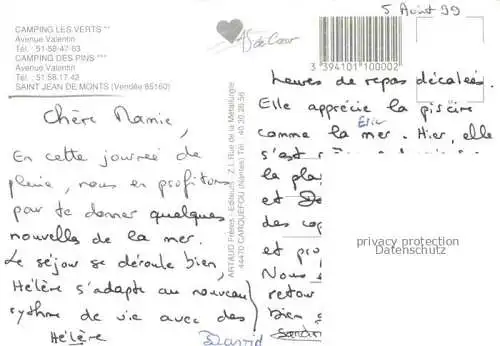 5 Août 99
CAMPING LES VERTS **
Avenue Valentin
Tél. : 51-58-47-63
CAMPING DES PINS ***
Avenue Valentin
Tél. : 51.58.17.42
SAINT JEAN DE MONTS (Vendée 85160)
de Cœur
3 394101 100002
Chère Mamie,
En cette journée de
pluie, nous en profitons
pour te donner quelques
nouvelles de la mer.
Le séjour se déroule bien,
Hélène s'adapte au nouveau
rythme de vie avec des
Hélène
David
ARTAUD Frères - Editeurs - Z.I. Rue de la Métallurgie
44470 CARQUEFOU (Nantes) Tél. 40.30.26.56
heures de repas décalées.
Elle apprécie la piscine
Eric
comme la mer. Hier, elle
s'est
la pla
et
des
et pro
Nous
retour
bien
Sandri
privacy protection
Datenschutz